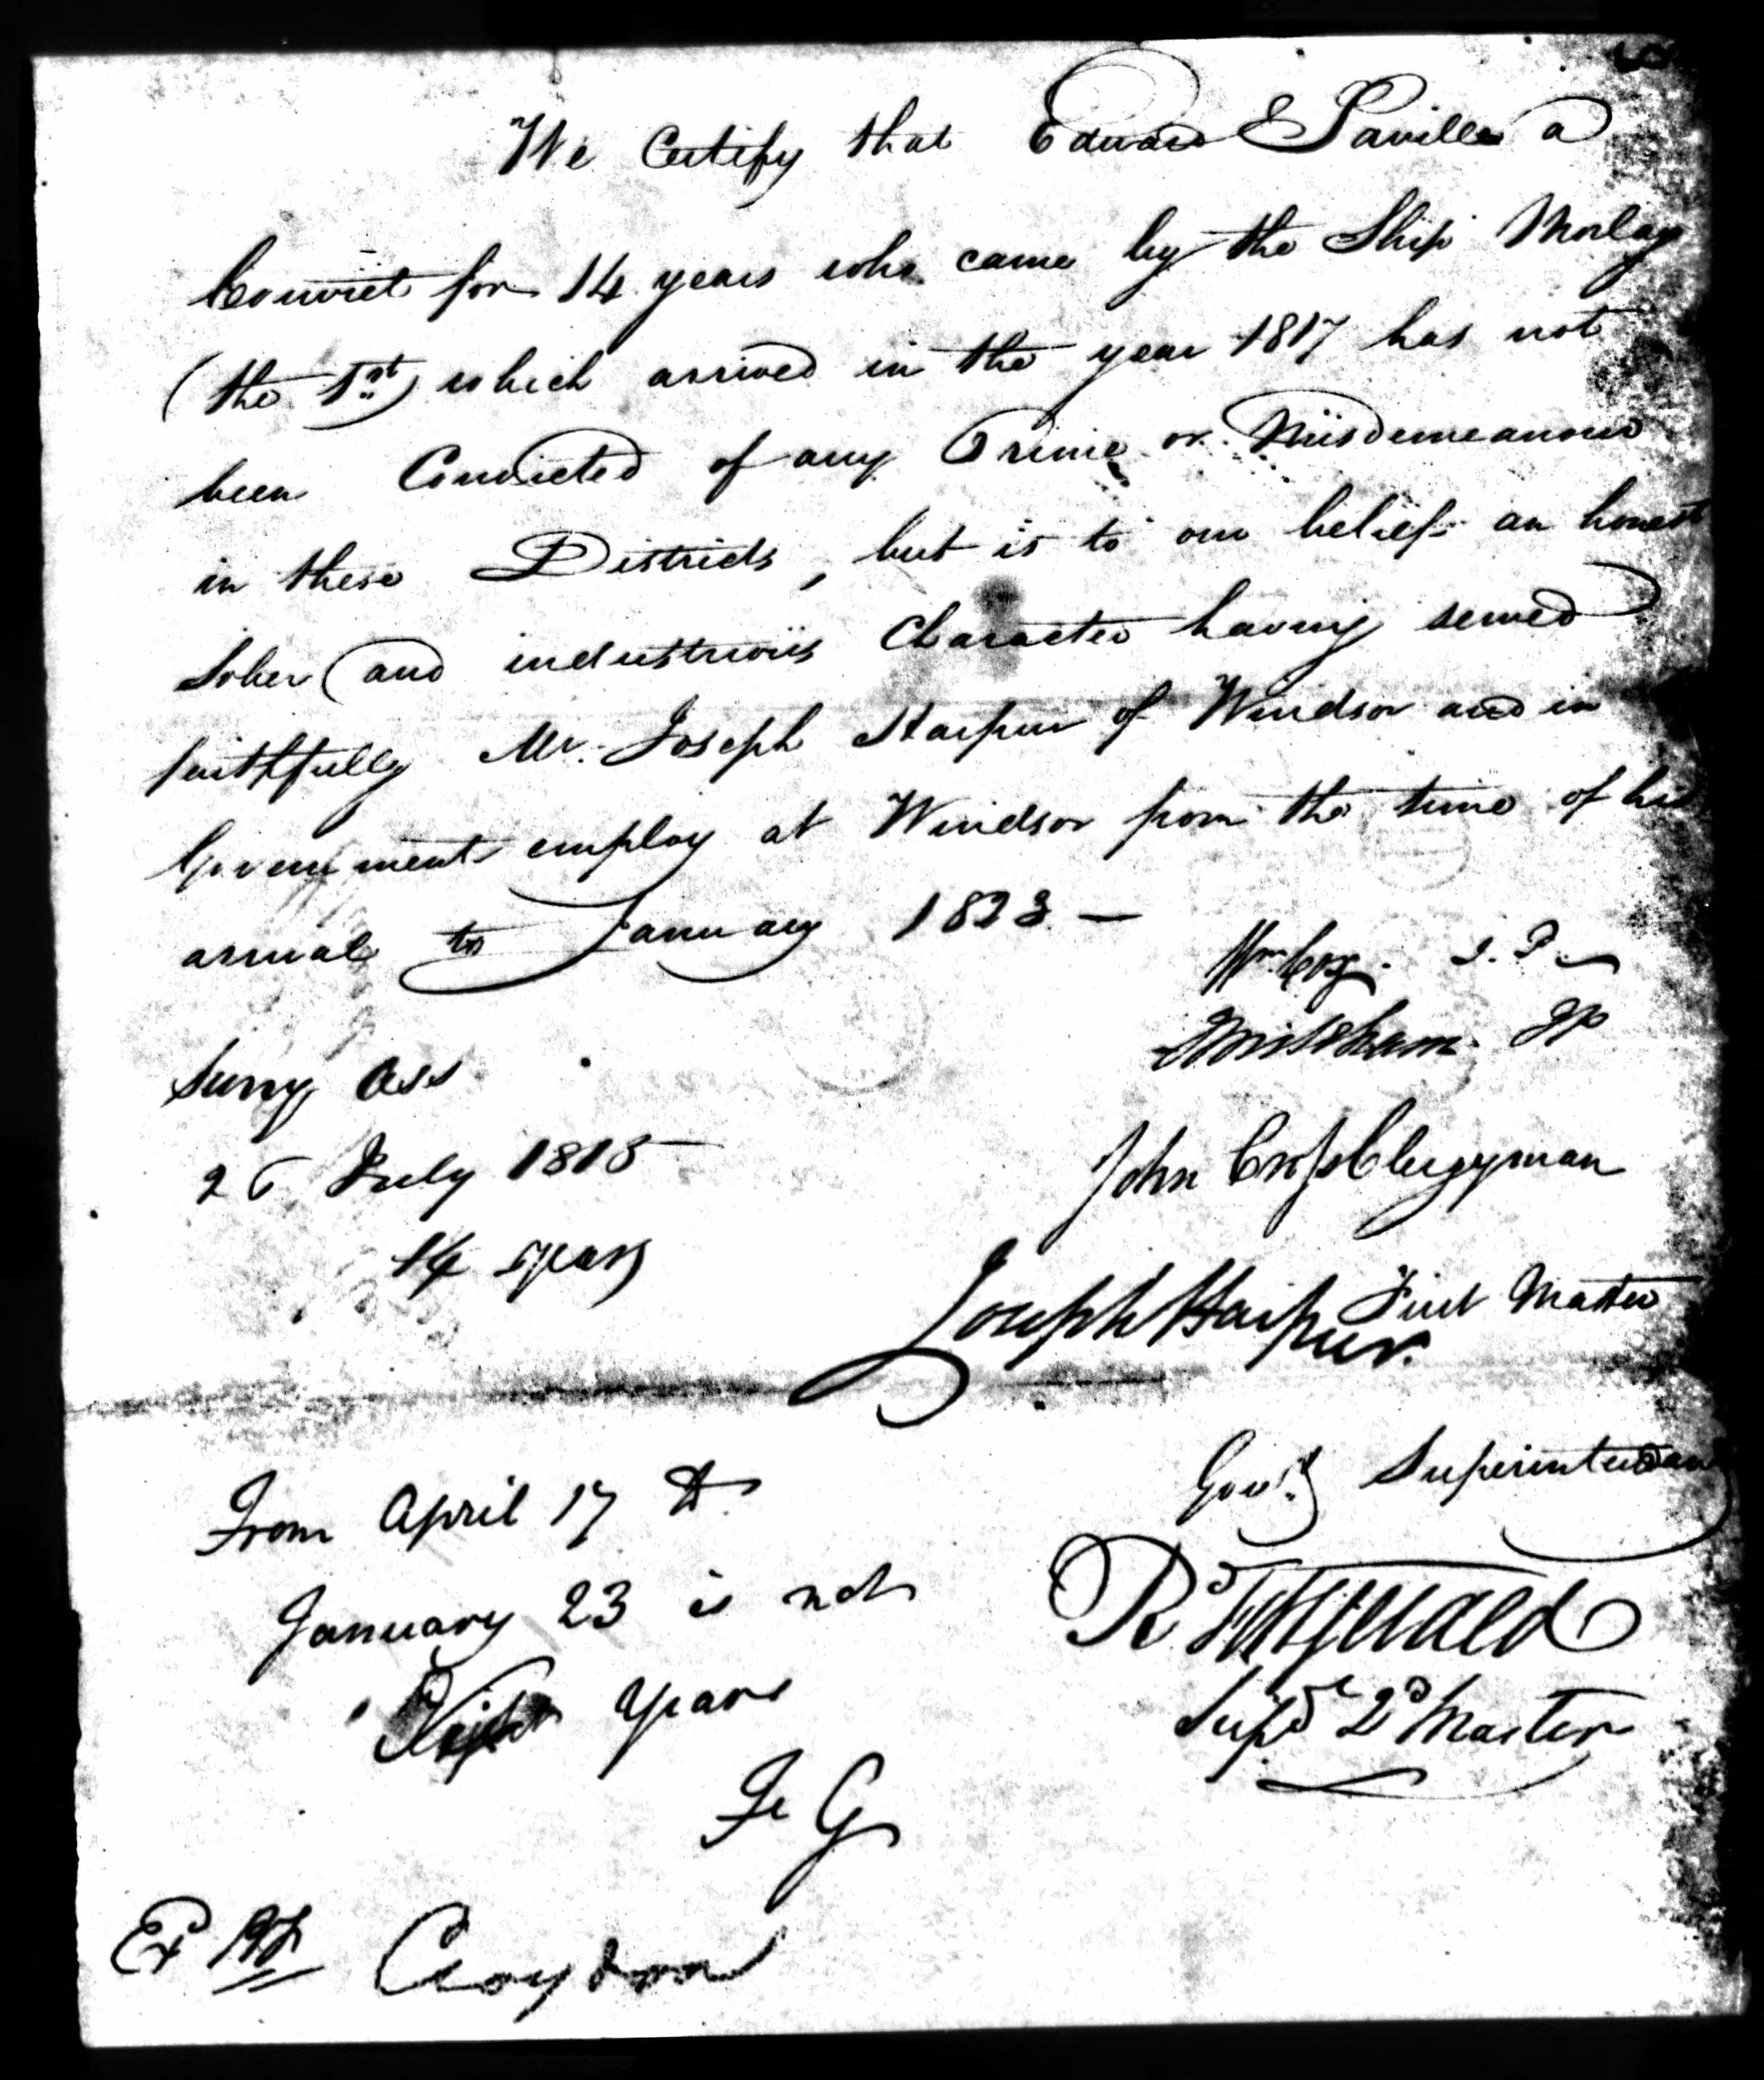 We Certify that Edward Saville a
Convict for 14 years who came by the Ship Morley
(the 1st) which arrived in the year 1817 has not
been Convicted of any Crime or Misdemeanour
in these Districts, but is to our belief an honest
Sober and industrious Character having served
faithfully Mr. Joseph Harpur of Windsor and in
Government employ at Windsor from the time of his
arrival to January 1823. —
Wm Cox. J. P.
JP
Surry Ass
26 July 1815
14 years
John Cross Clergyman
Joseph Harpur. First Master
From April 17 to
January 23 is not
years
F G
Govt. Superintendant
Rd Fitzgerald
Supd 2d Master
Croydon